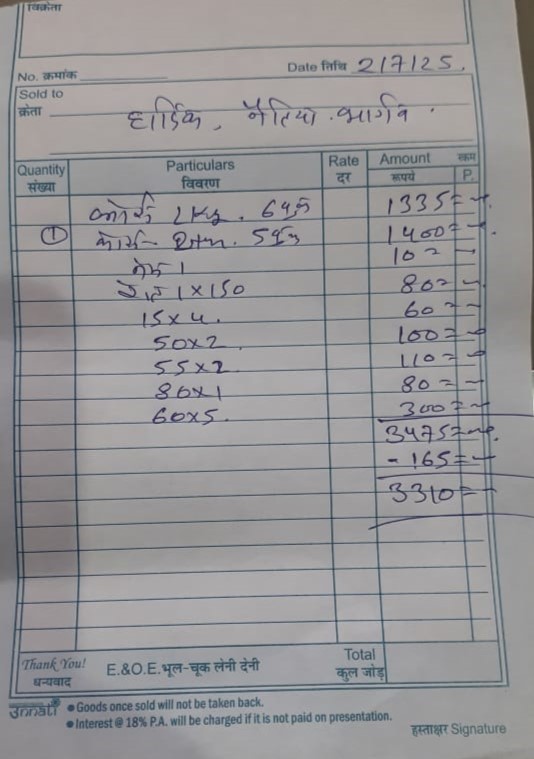 विक्रेता
No. क्रमांक Date तिथि 2/7/25.
Sold to
क्रेता हार्दिक, नैतिया भार्गव.
Quantity संख्या Particulars विवरण Rate दर Amount रकम रूपये P.
कोर्स 1335=
① कोर्स 1400=
1 10=
1x150 80=
15x4. 60=
50x2. 100=
55x2. 110=
80x1 80=
60x5. 300=
3475=
-165=
3310=
Thank You! धन्यवाद E.&O.E. भूल-चूक लेनी देनी Total कुल जोड़
उन्नति • Goods once sold will not be taken back.
• Interest @ 18% P.A. will be charged if it is not paid on presentation.
हस्ताक्षर Signature